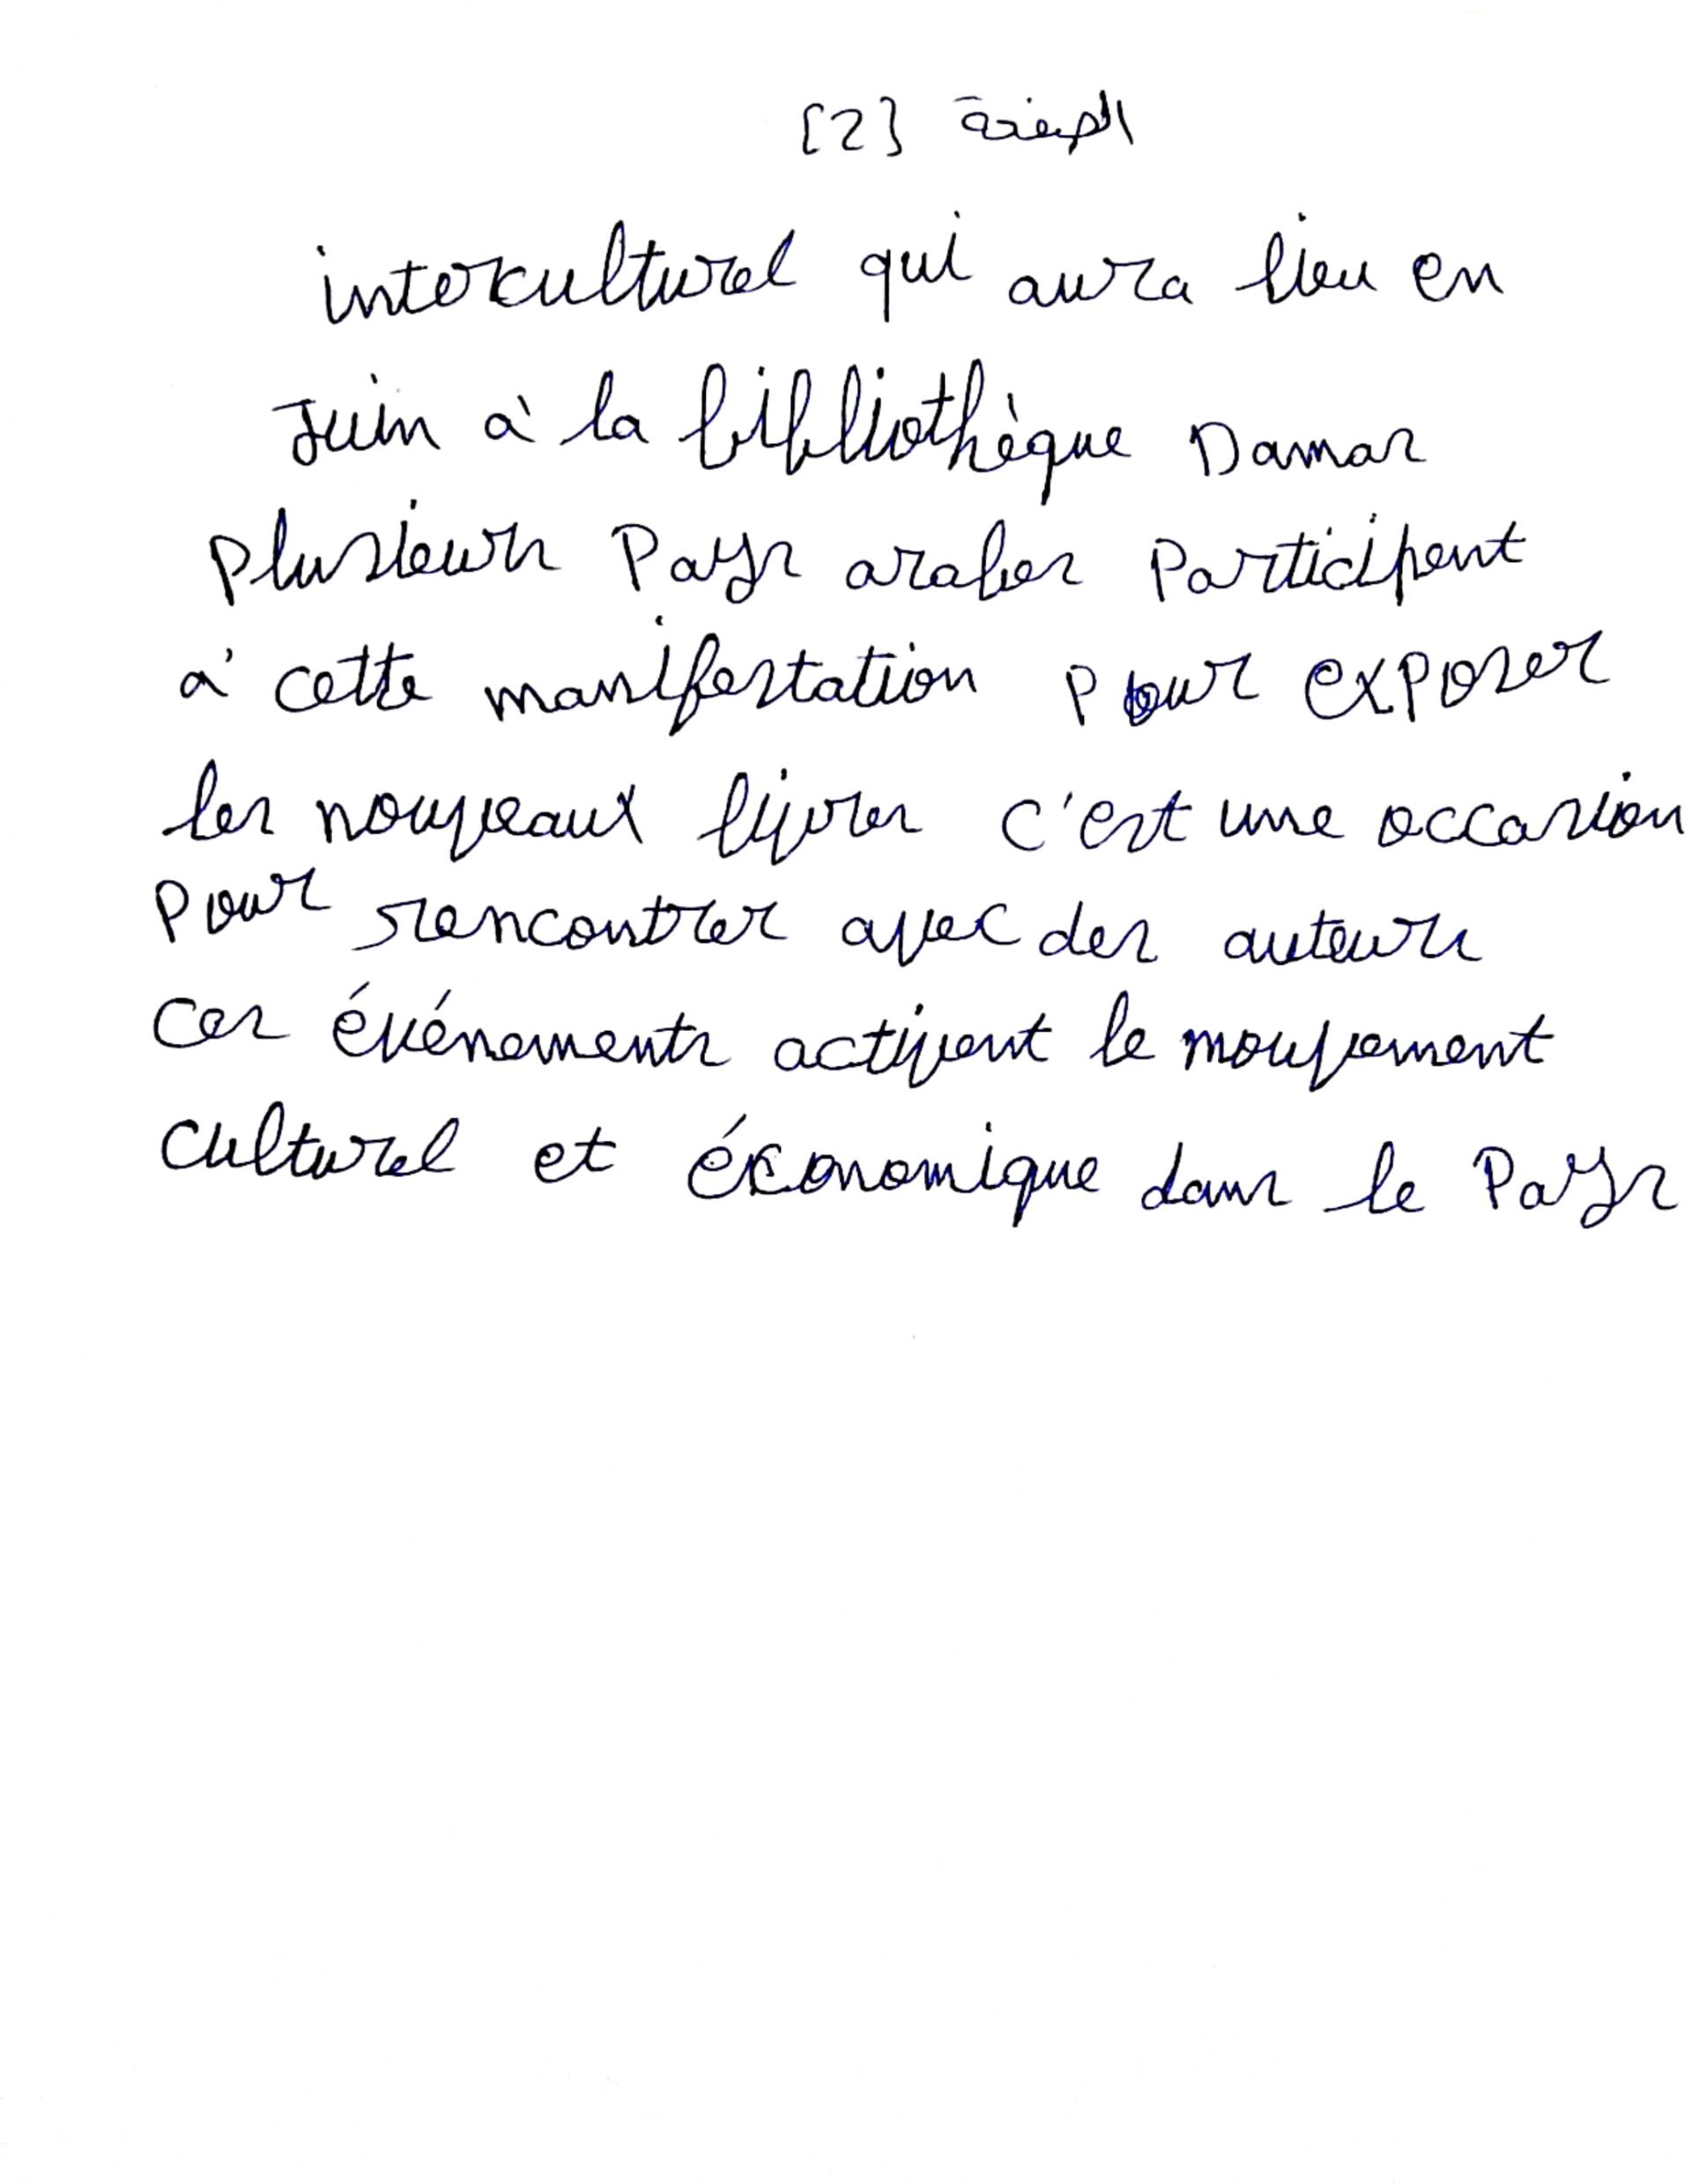 الصفحة [2]
interculturel qui aura lieu en
Juin à la bibliothèque Damas
plusieurs Pays arabes Participent
à cette manifestation pour exposer
les nouveaux livres c'est une occasion
pour rencontrer avec des auteurs
ces événements activent le mouvement
culturel et économique dans le Pays